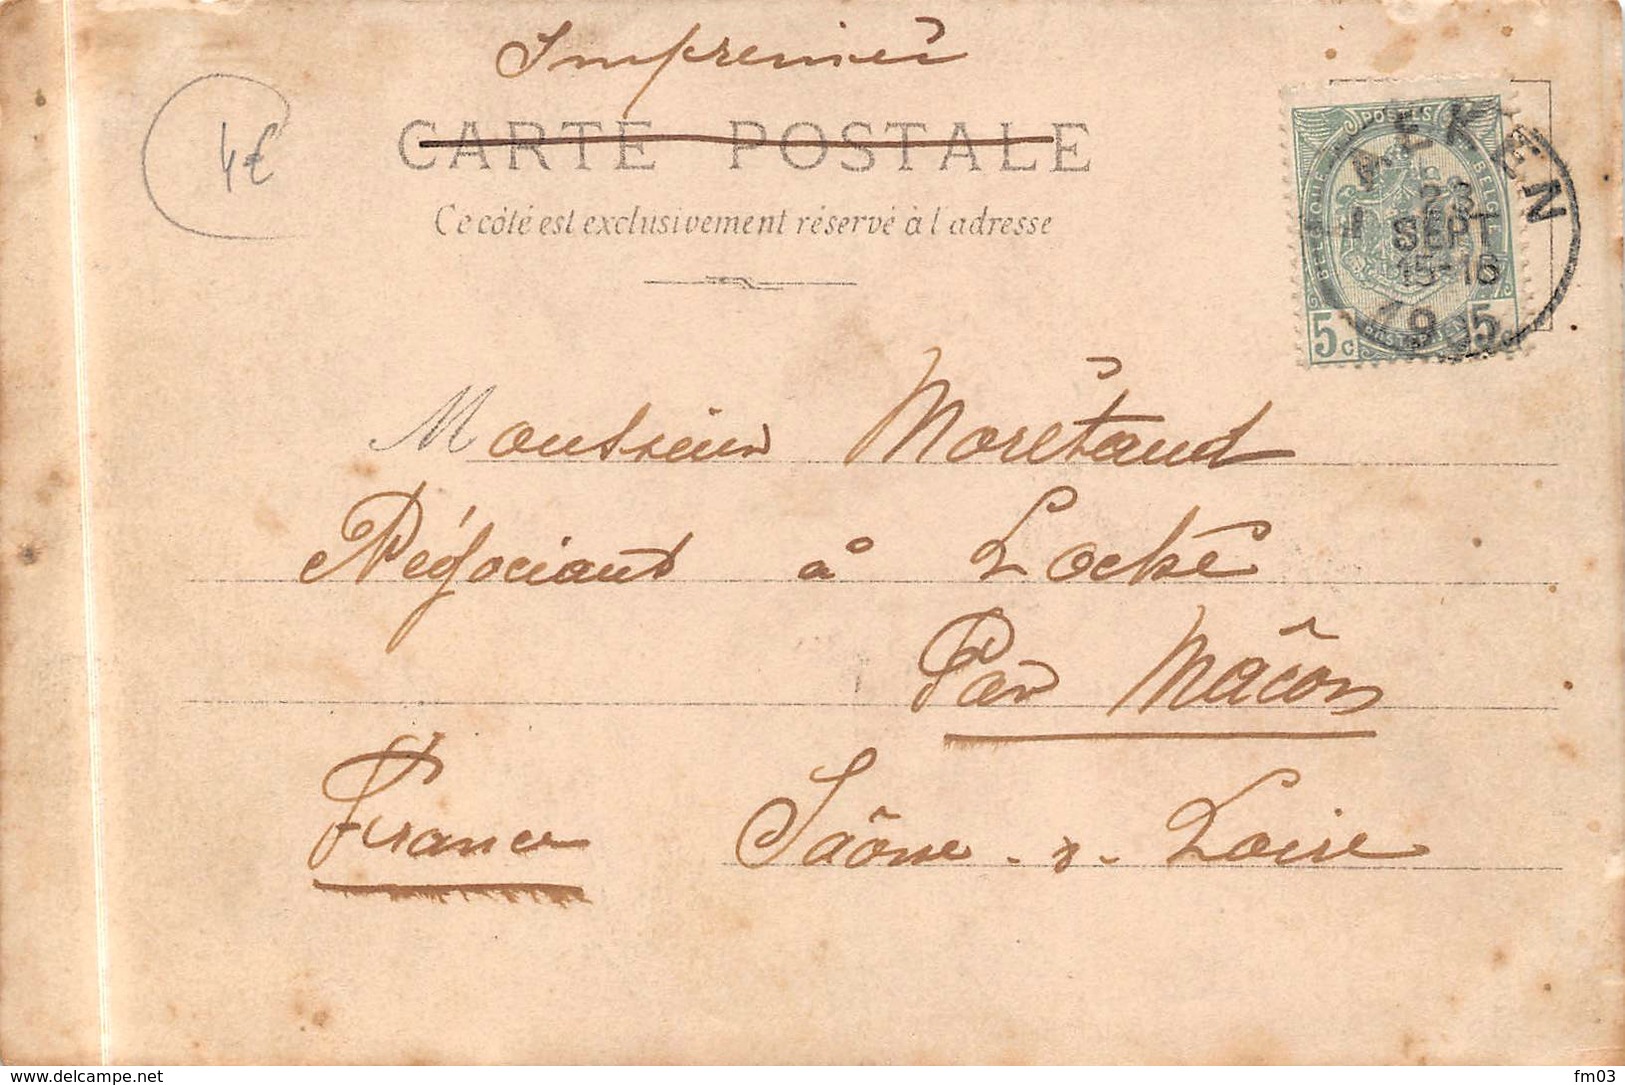 Imprimér
4€
CARTE POSTALE
Ce côté est exclusivement réservé à l'adresse
POSTES
BELGIQUE
BELGIË
5c 5c
LAEKEN
23
SEPT
15-16
19
Monsieur Morétaud
Négociant à Loché
Par Mâcon
France Saône-&-Loire
www.delcampe.net
fm03